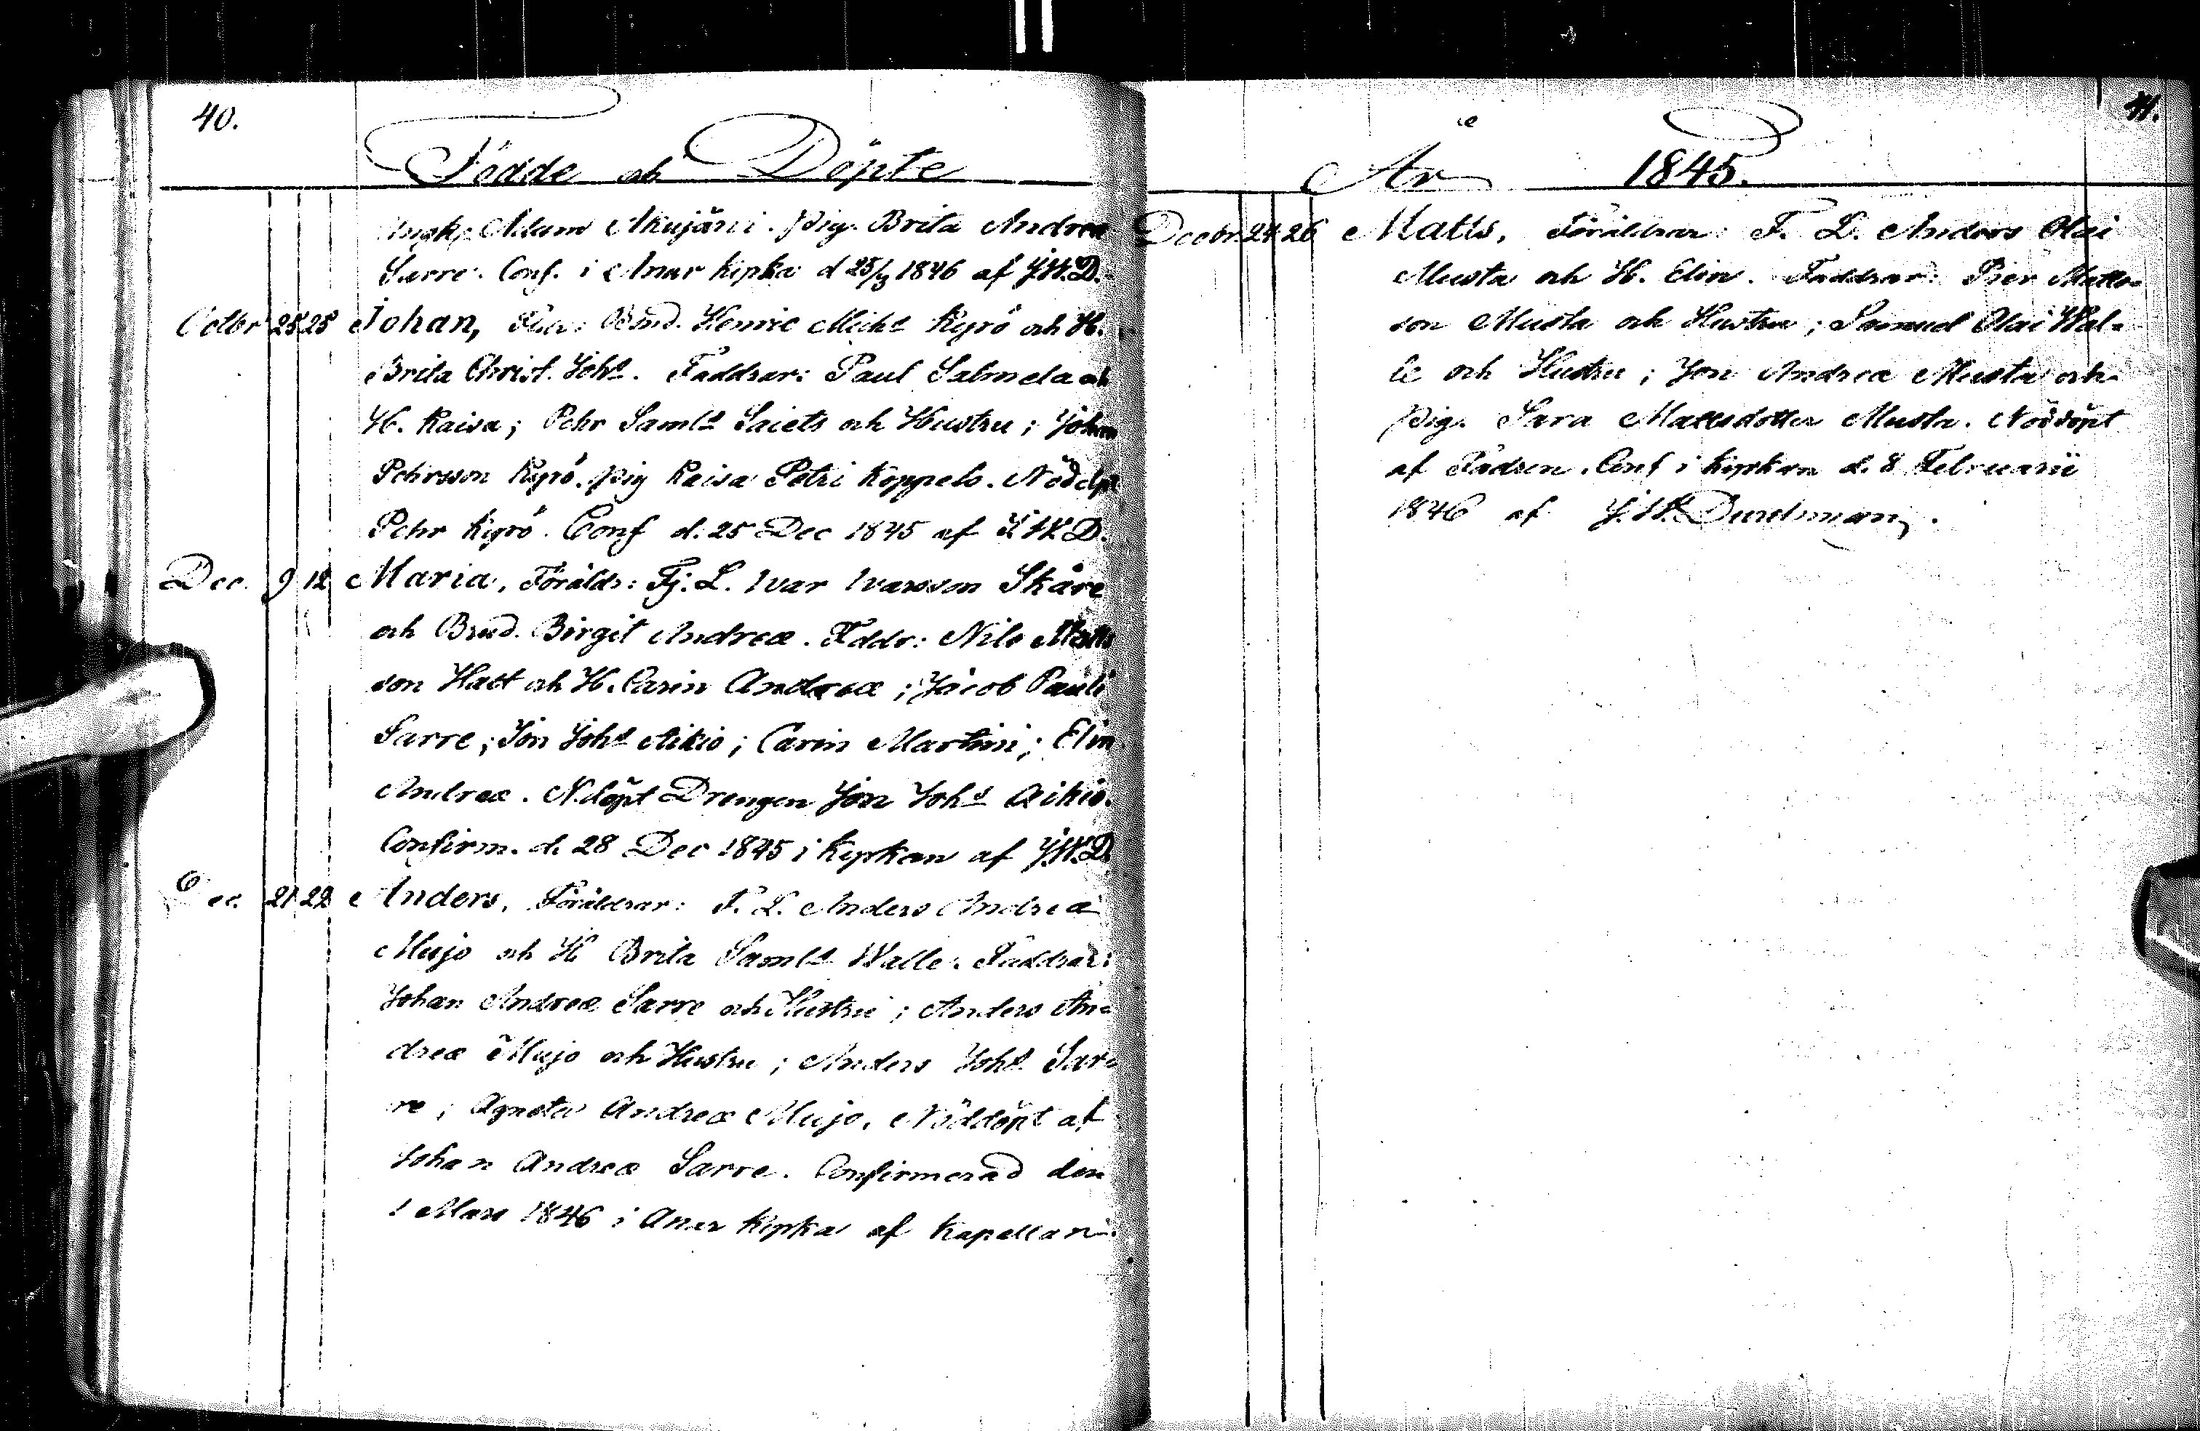 40.
Födde och Döpte
Adam Akujärvi. Pig. Brita Andreæ
Sarre. Conf. i Anar kyrka d 25/3 1846 af J.W.D.
Octbr 25 28 Johan, Bmd. Henric Michs Kyrö och H.
Brita Christ. Johs. Faddrar: Paul Salmela och
H. Kaisa; Pehr Samls Saiets och Hustru; Johan
Pehrsson Kyrö. Pig Kaisa Petri Koppelo. Nöddpt
Pehr Kyrö. Conf d. 25 Dec 1845 af J.W.D.
Dec. 9 12 Maria, Föräldr: Fj. L. Ivar Ivarsson Skåre
och Brud. Birgit Andreæ. Fddr: Nils Matts
son Hatt och H. Carin Andreæ; Jacob Pauli
Sarre; Jon Johs Aikio; Carin Martini; Elin
Andreæ. N.döpt Drengen Jon Johs Aikio.
Confirm. d. 28 Dec 1845 i kyrkan af J.W.D.
Dec. 21 22 Anders, Föräldrar: F. L. Anders Andreæ
Mujo och H Brita Samls Walle. Faddrar:
Johan Andreæ Sarre och Hustru; Anders An=
dreæ Mujo och Hustru; Anders Johs Sar=
re; Agneta Andreæ Mujo. Nöddöpt af
Johan Andreæ Sarre. Confirmerad den
1 Mars 1846 i Anar kyrka af Kapellan
41.
År 1845.
Decbr 24 26 Matts, Föräldrar: F. L. Anders Olai
Musta och H. Elin. Faddrar: Pier Matts=
son Musta och Hustru; Samuel Olai Wal=
le och Hustru; Jon Andreæ Musta och
Pig. Sara Mattsdotter Musta. Nöddöpt
af Fadren. Conf i kyrkan d. 8 Februarii
1846 af J. W. Durchman.